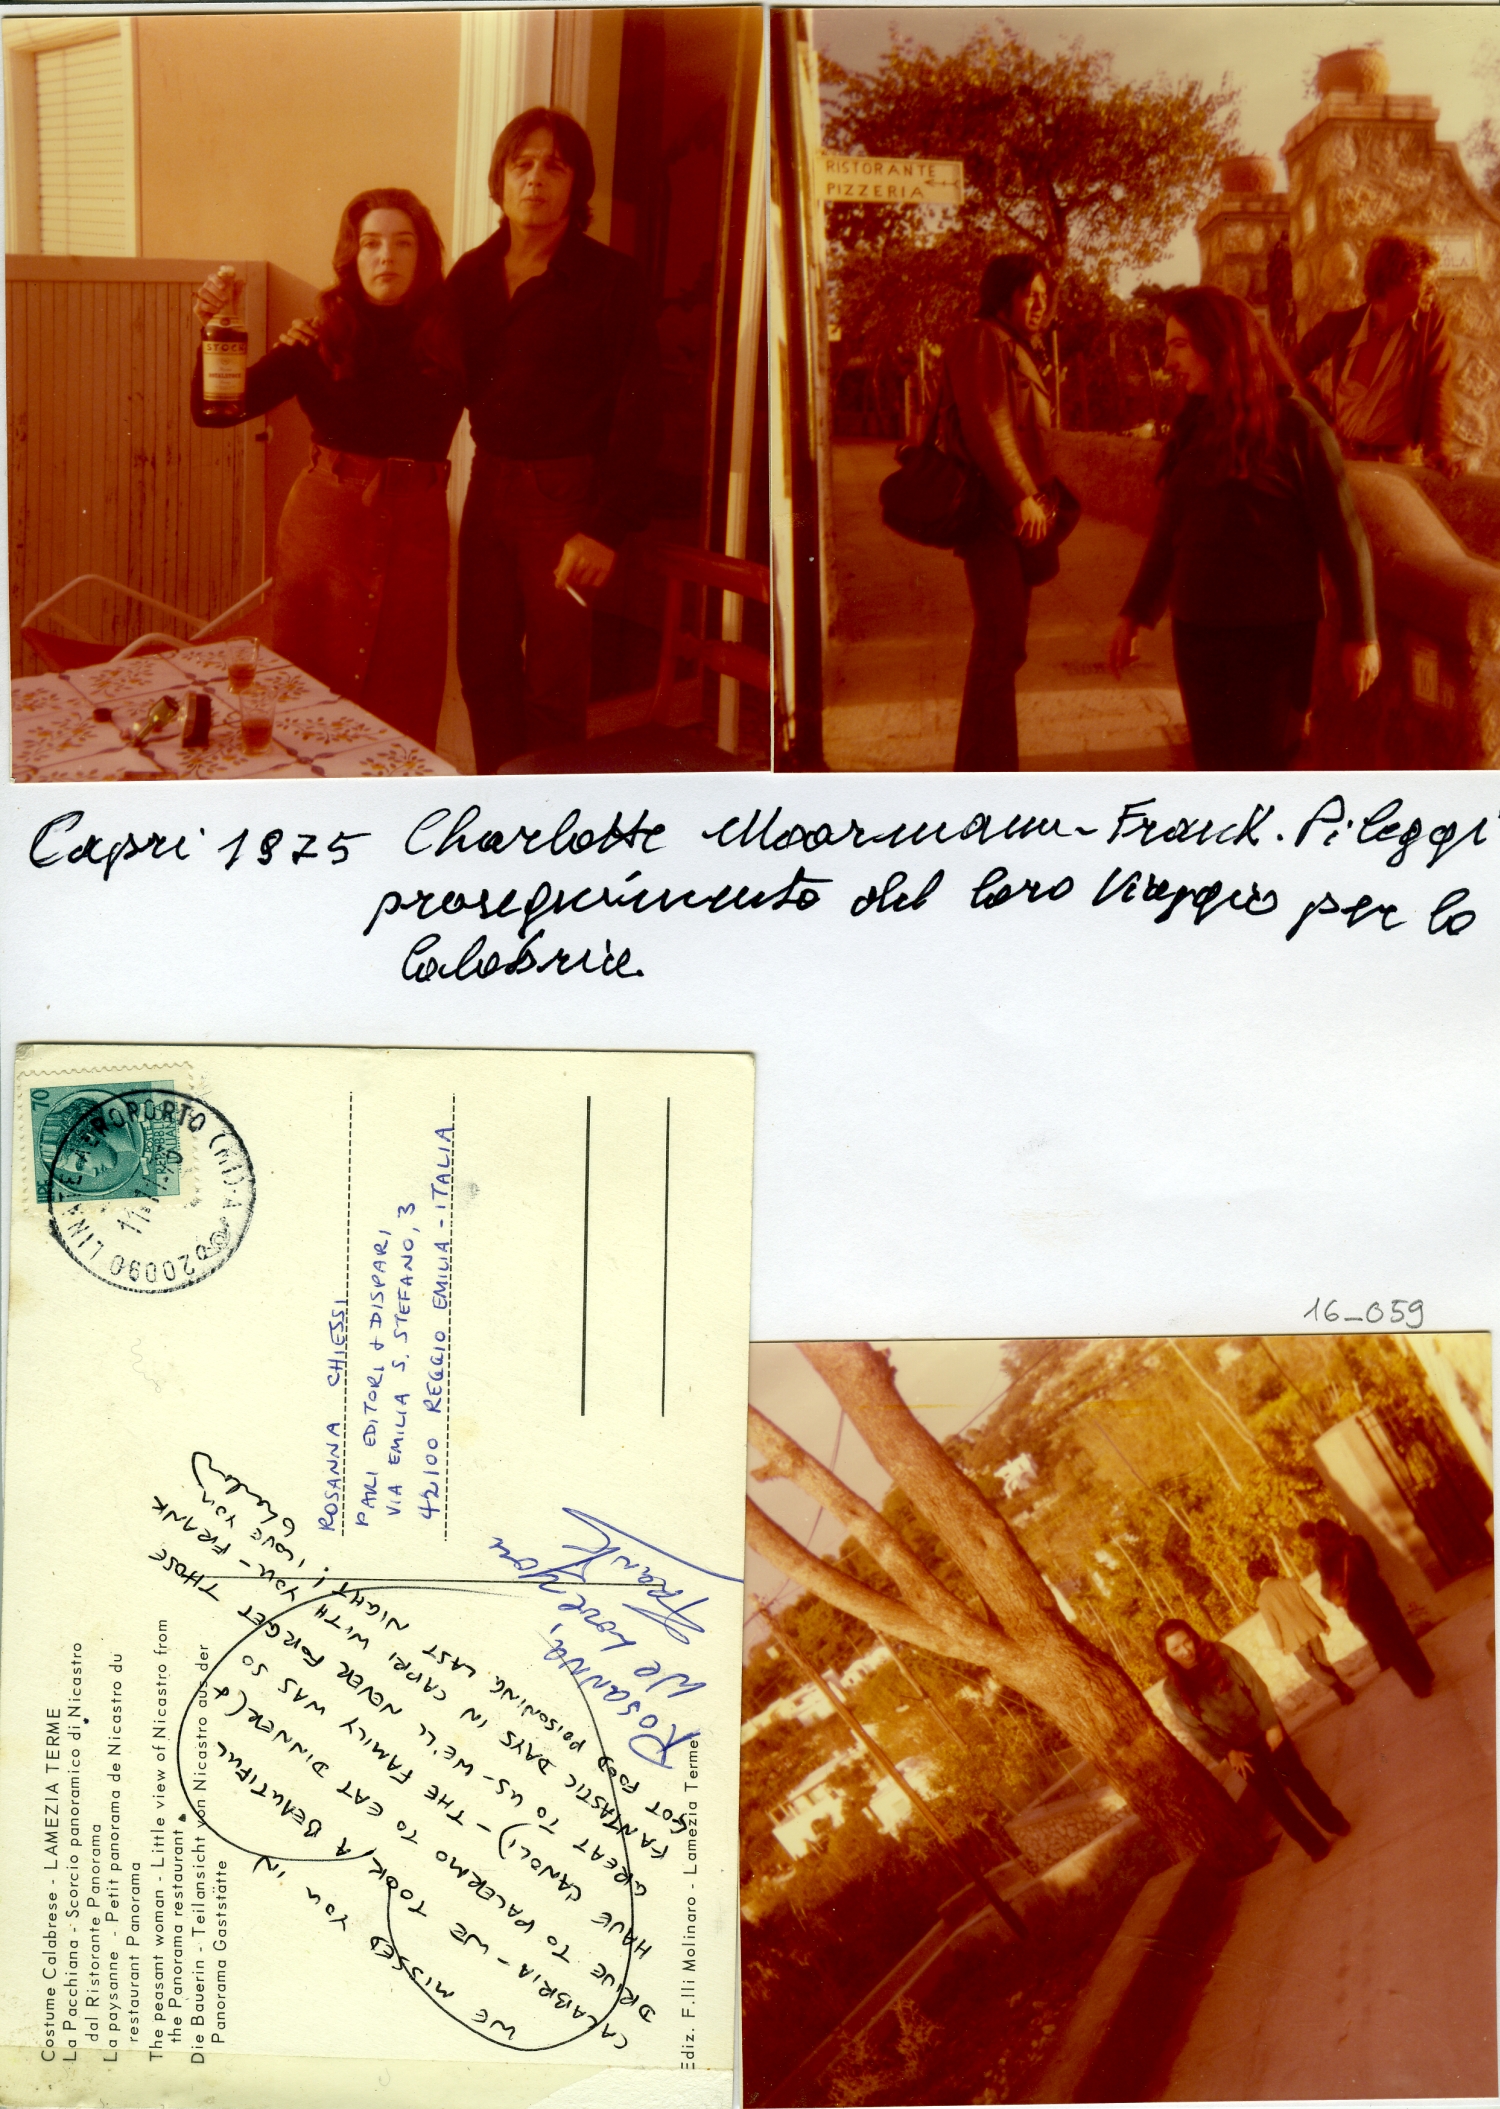 STOCK
RISTORANTE
PIZZERIA
Capri 1975 Charlotte Moormann - Frank. Pileggi
proseguimento del loro viaggio per la
Calabria.
16_059
LIRE 70
POSTE
LINATE AEROPORTO (MI) A
20090
ROSANNA CHIESSI
PARI EDITORI & DISPARI
VIA EMILIA S. STEFANO, 3
42100 REGGIO EMILIA - ITALIA
WE MISSED YOU IN
CALABRIA - WE TOOK A BEAUTIFUL
DRIVE TO PALERMO TO EAT DINNER (&
HAVE CANOLI) - THE FAMILY WAS SO
GREAT TO US - WE'LL NEVER FORGET THOSE
FANTASTIC DAYS IN CAPRI WITH YOU - FRANK
GOT FOOD POISONING LAST NIGHT! I LOVE YOU
Rosanna,
We Love you
Frank
Costume Calabrese - LAMEZIA TERME
La Pacchiana - Scorcio panoramico di Nicastro
dal Ristorante Panorama
La paysanne - Petit panorama de Nicastro du
restaurant Panorama
The peasant woman - Little view of Nicastro from
the Panorama restaurant
Die Bauerin - Teilansicht von Nicastro aus der
Panorama Gaststätte
Ediz. F.lli Molinaro - Lamezia Terme